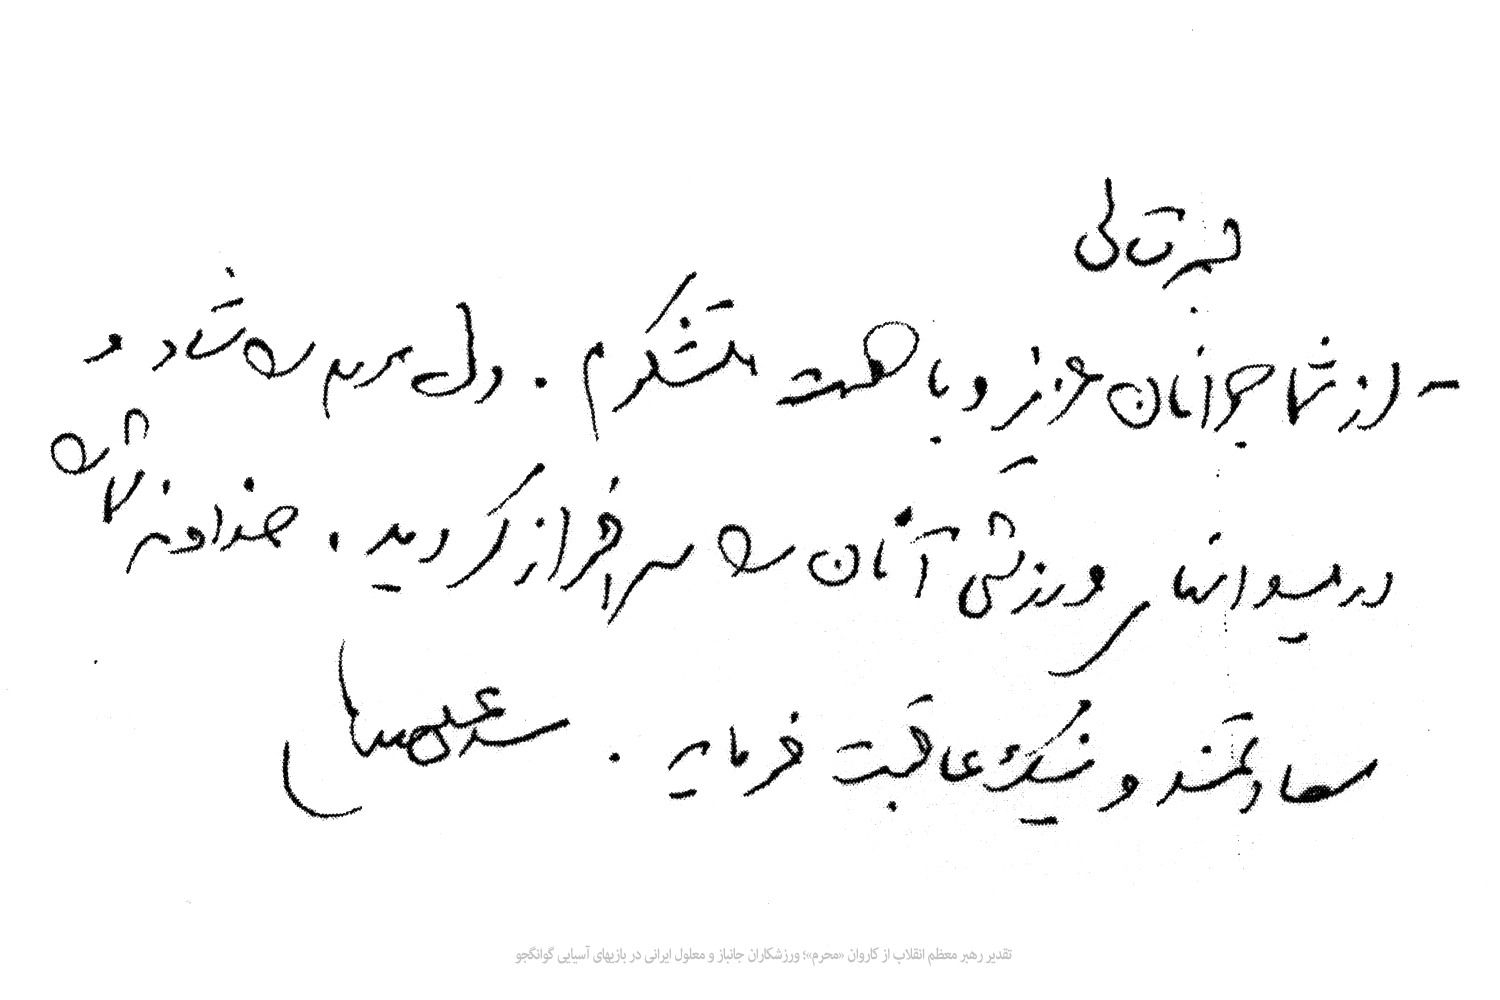 بسمه تعالی
- از شما جوانان عزیز و با همت متشکرم . دل مردم را شاد و
در میدانهای ورزشی آنان را سرافراز کردید . خداوند شما را
سعادتمند و نیک عاقبت فرماید . سید علی خامنه‌ای
تقدیر رهبر معظم انقلاب از کاروان «محرم»؛ ورزشکاران جانباز و معلول ایرانی در بازیهای آسیایی گوانگجو